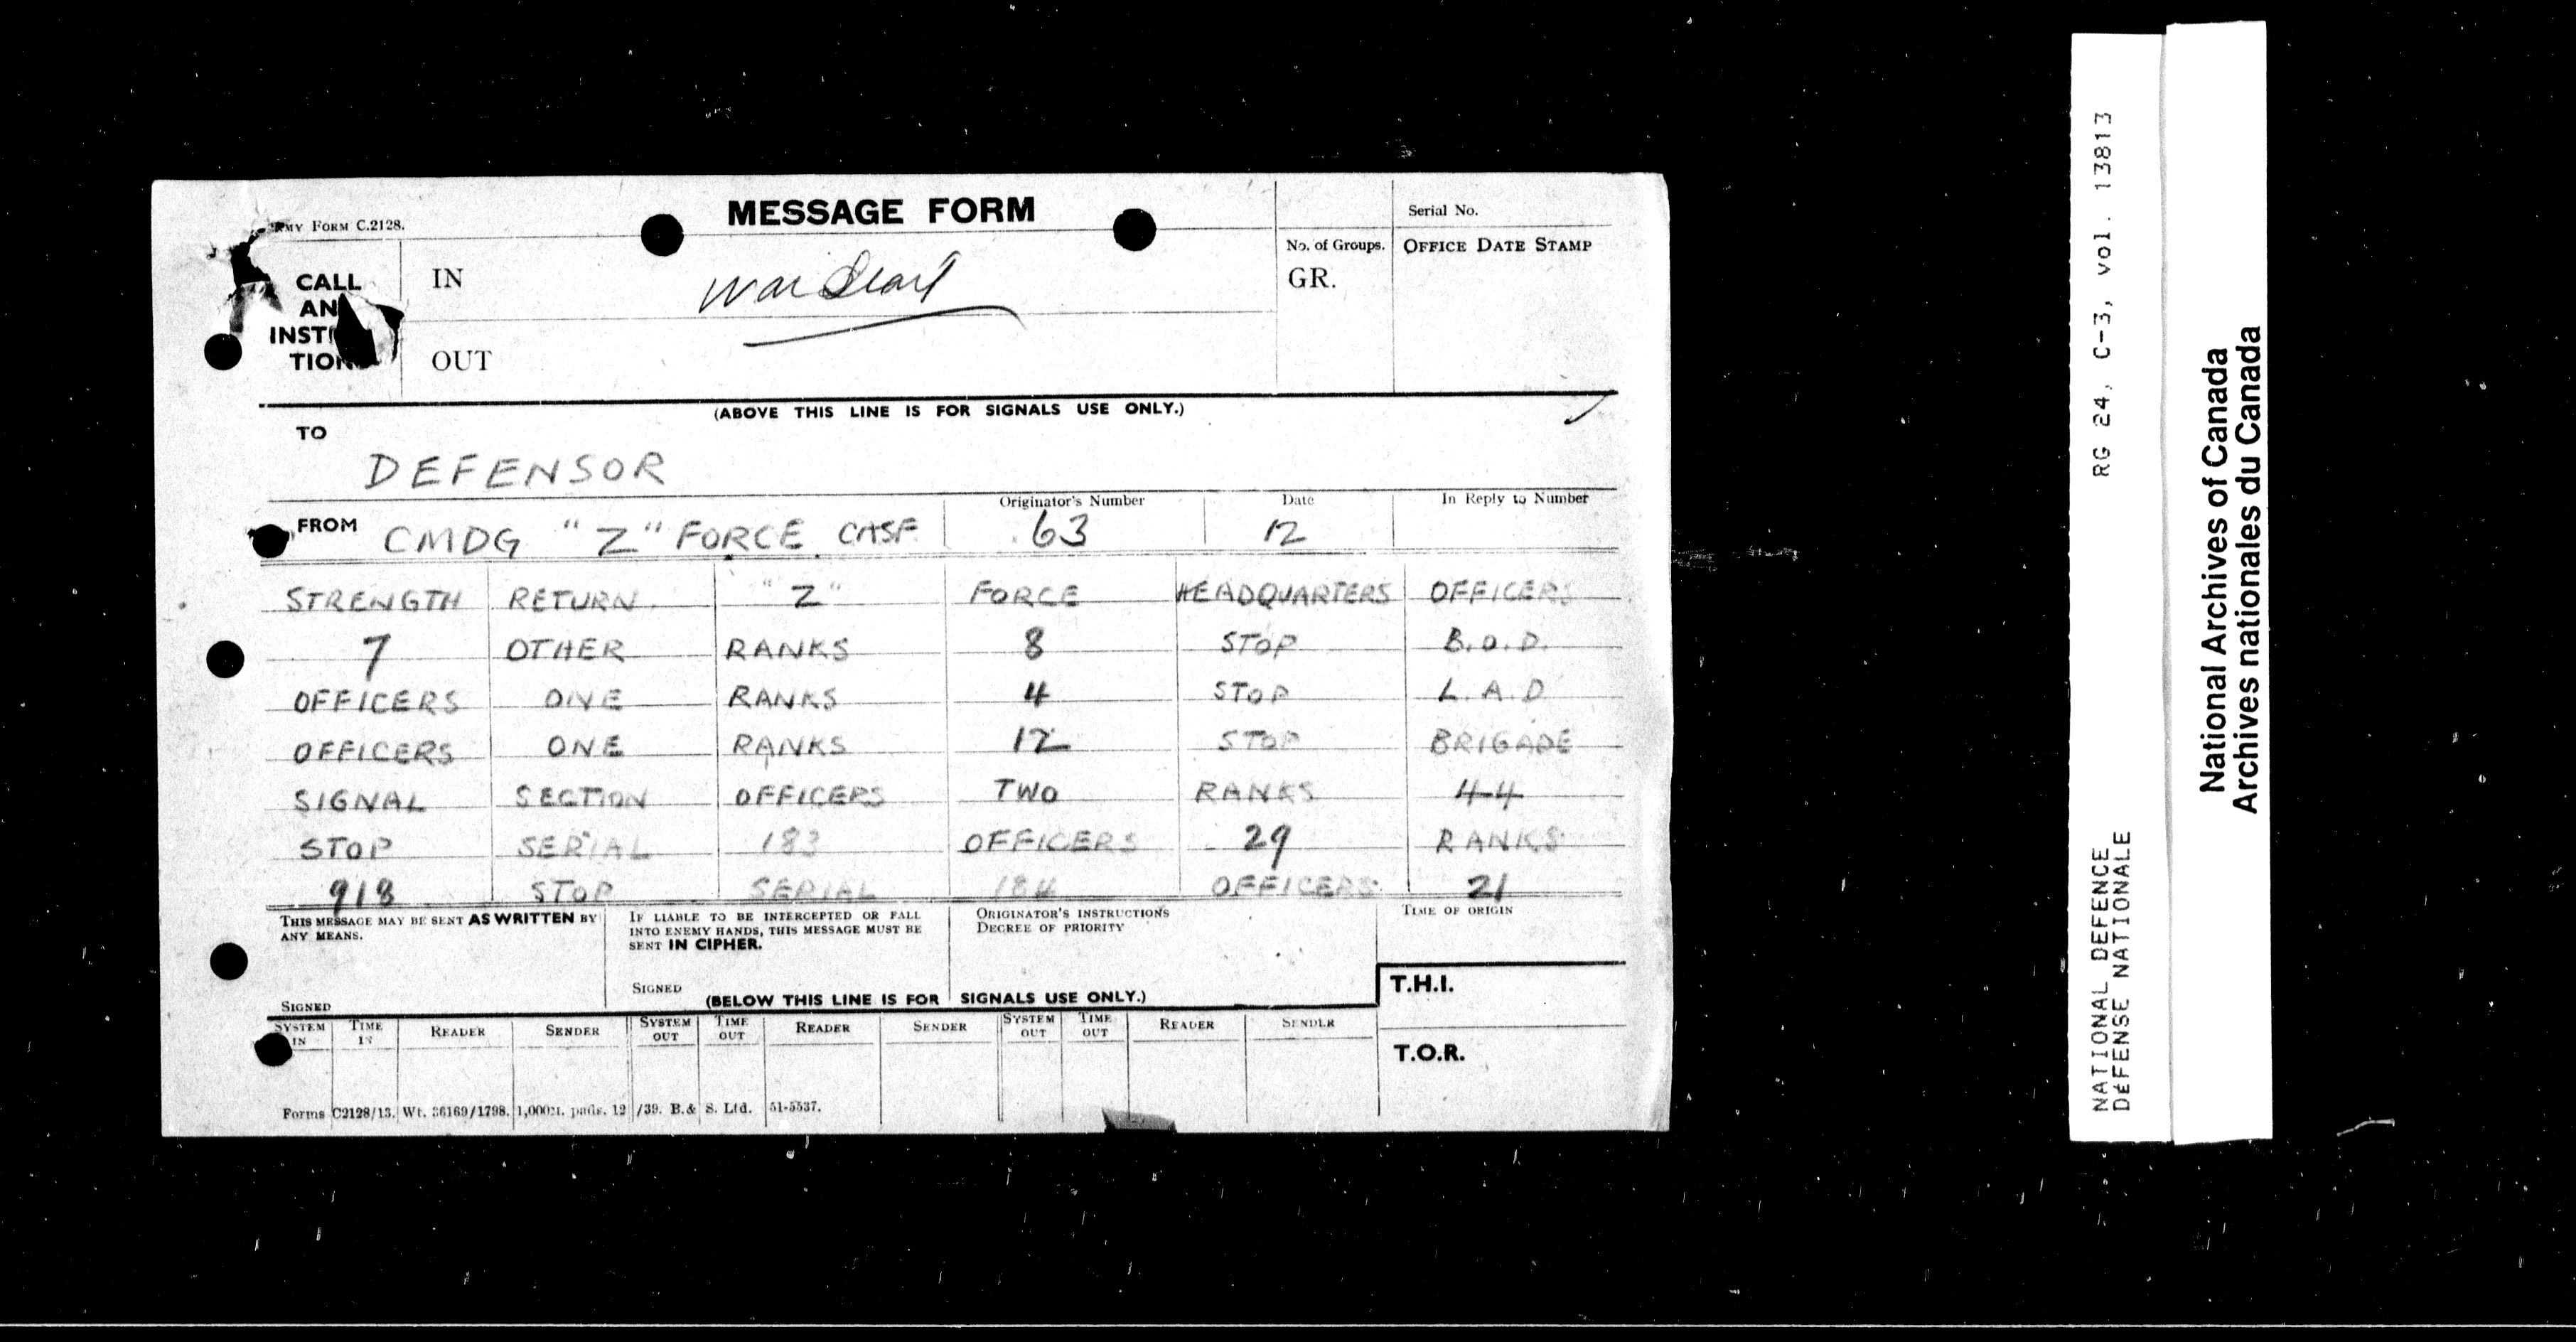 MESSAGE FORM
Serial No.
RMY FORM C.2128.
No. of Groups. OFFICE DATE STAMP
CALL IN GR.
AN
INST
TION OUT
(ABOVE THIS LINE IS FOR SIGNALS USE ONLY.)
TO
DEFENSOR
Originator's Number Date In Reply to Number
FROM CMDG "Z" FORCE CASF 63 12
STRENGTH RETURN "Z" FORCE HEADQUARTERS OFFICERS
7 OTHER RANKS 8 STOP B.O.D.
OFFICERS ONE RANKS 4 STOP L.A.D
OFFICERS ONE RANKS 12 STOP BRIGADE
SIGNAL SECTION OFFICERS TWO RANKS 44
STOP SERIAL 183 OFFICERS 29 RANKS
918 STOP SERIAL 184 OFFICERS 21
THIS MESSAGE MAY BE SENT AS WRITTEN BY
ANY MEANS.
SIGNED
IF LIABLE TO BE INTERCEPTED OR FALL
INTO ENEMY HANDS, THIS MESSAGE MUST BE
SENT IN CIPHER.
SIGNED
ORIGINATOR'S INSTRUCTIONS
DEGREE OF PRIORITY
TIME OF ORIGIN
(BELOW THIS LINE IS FOR SIGNALS USE ONLY.)
T.H.I.
SYSTEM IN TIME IN READER SENDER SYSTEM OUT TIME OUT READER SENDER SYSTEM OUT TIME OUT READER SENDER
T.O.R.
Forms C2128/13. Wt. 36169/1798. 1,000M. pads. 12/39. B.& S. Ltd. 51-5537.
RG 24, C-3, vol. 13813
NATIONAL DEFENCE
DÉFENSE NATIONALE
National Archives of Canada
Archives nationales du Canada